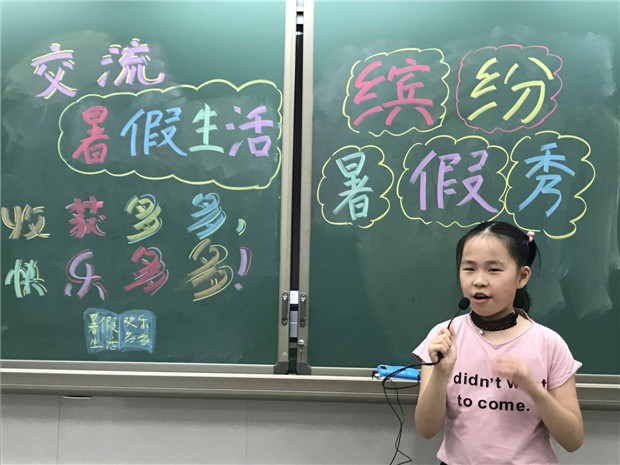 交流
暑假生活
收获多多，
快乐多多！
暑假欢乐
生活多多
缤纷
暑假秀
didn't want
to come.